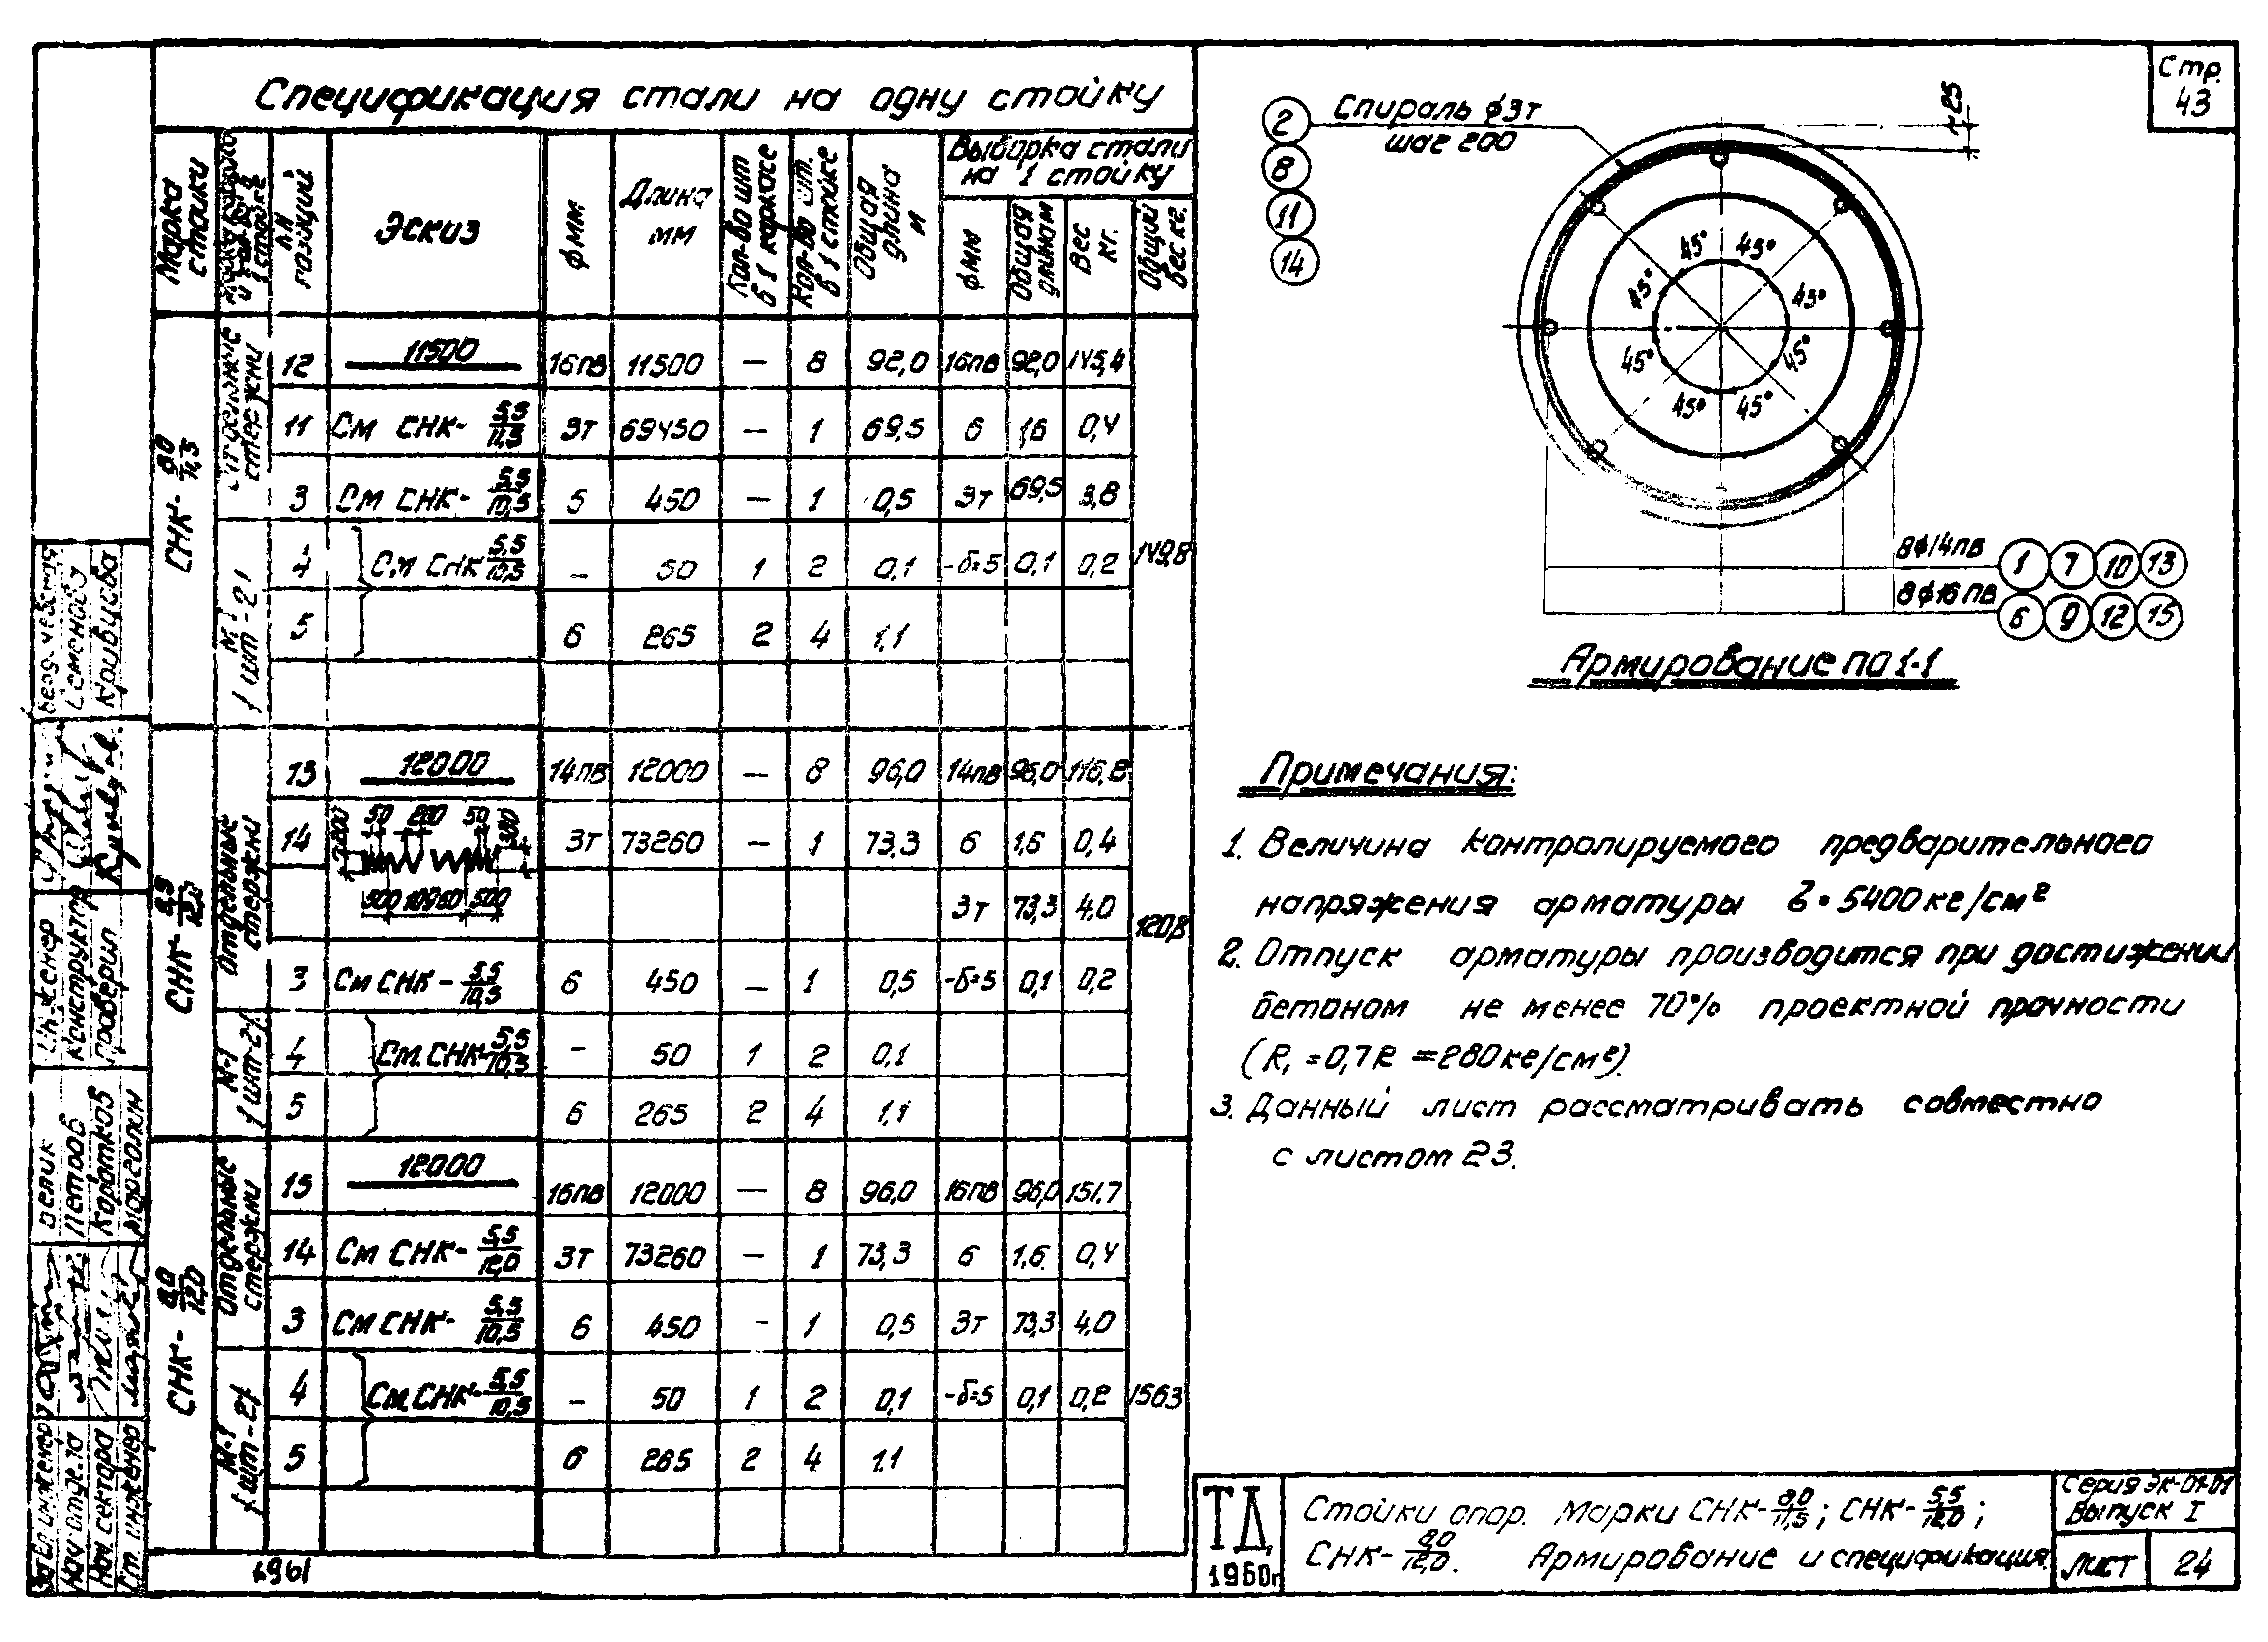 Стр.
43
Спецификация стали на одну стойку
Марка стойки
NN позиций
Эскиз
ф мм
Длина мм
Кол-во шт в 1 каркасе
Кол-во шт. в 1 стойке
Общая длина м
Выборка стали на 1 стойку
ф мм
Общая длина м
Вес кг.
Общий вес кг.
СНК- 8,0/11,5
Отдельные стержни
12 11500 16пв 11500 — 8 92,0 16пв 92,0 145,4
11 См СНК- 5,5/11,5 3т 69450 — 1 69,5 6 1,6 0,4
3 См СНК- 5,5/10,5 5 450 — 1 0,5 3т 69,5 3,8
М-1 1 шт-2
4 См СНК 5,5/10,5 – 50 1 2 0,1 -δ=5 0,1 0,2
149,8
5 6 265 2 4 1,1
СНК- 5,5/12,0
Отдельные стержни
13 12000 14пв 12000 — 8 96,0 14пв 96,0 116,8
14 50 200 50 3т 73260 — 1 73,3 6 1,6 0,4
500 10960 500 3т 73,3 4.0
120,8
3 См СНК - 5,5/10,5 6 450 — 1 0,5 -δ=5 0,1 0,2
М-1 1 шт-2
4 См СНК 5,5/10,5 – 50 1 2 0,1
5 6 265 2 4 1,1
СНК- 8,0/12,0
Отдельные стержни
15 12000 16пв 12000 — 8 96.0 16пв 96,0 151.7
14 См СНК- 5,5/12,0 3т 73260 — 1 73,3 6 1,6 0,4
3 См СНК- 5,5/10,5 6 450 - 1 0,5 3т 73,3 4.0
М-1 1 шт-2
4 См СНК- 5,5/10,5 – 50 1 2 0,1 -δ=5 0,1 0,2
1563
5 6 265 2 4 1.1
1961
2
8
11
14
Спираль ф3т
шаг 200
25
45° 45°
45° 45°
45° 45°
45° 45°
8ф14пв 1 7 10 13
8ф16пв 6 9 12 15
Армирование по 1-1
Примечания:
1. Величина контролируемого предварительного
напряжения арматуры б = 5400кг/см²
2. Отпуск арматуры производится при достижении
бетоном не менее 70% проектной прочности
(R₁ =0,7R =280кг/см²).
3. Данный лист рассматривать совместно
с листом 23.
ТД
1960г
Стойки опор. Марки СНК- 8,0/11,5; СНК- 5,5/12,0;
СНК- 8,0/12,0. Армирование и спецификация.
Серия ЭК-01-01
Выпуск I
Лист 24
Семенова
Кривцова
Инженер
Конструктор
Проверил
Белик
Петров
Коротков
Марголин
Нач отдела
Нач. сектора
Ст. инженер